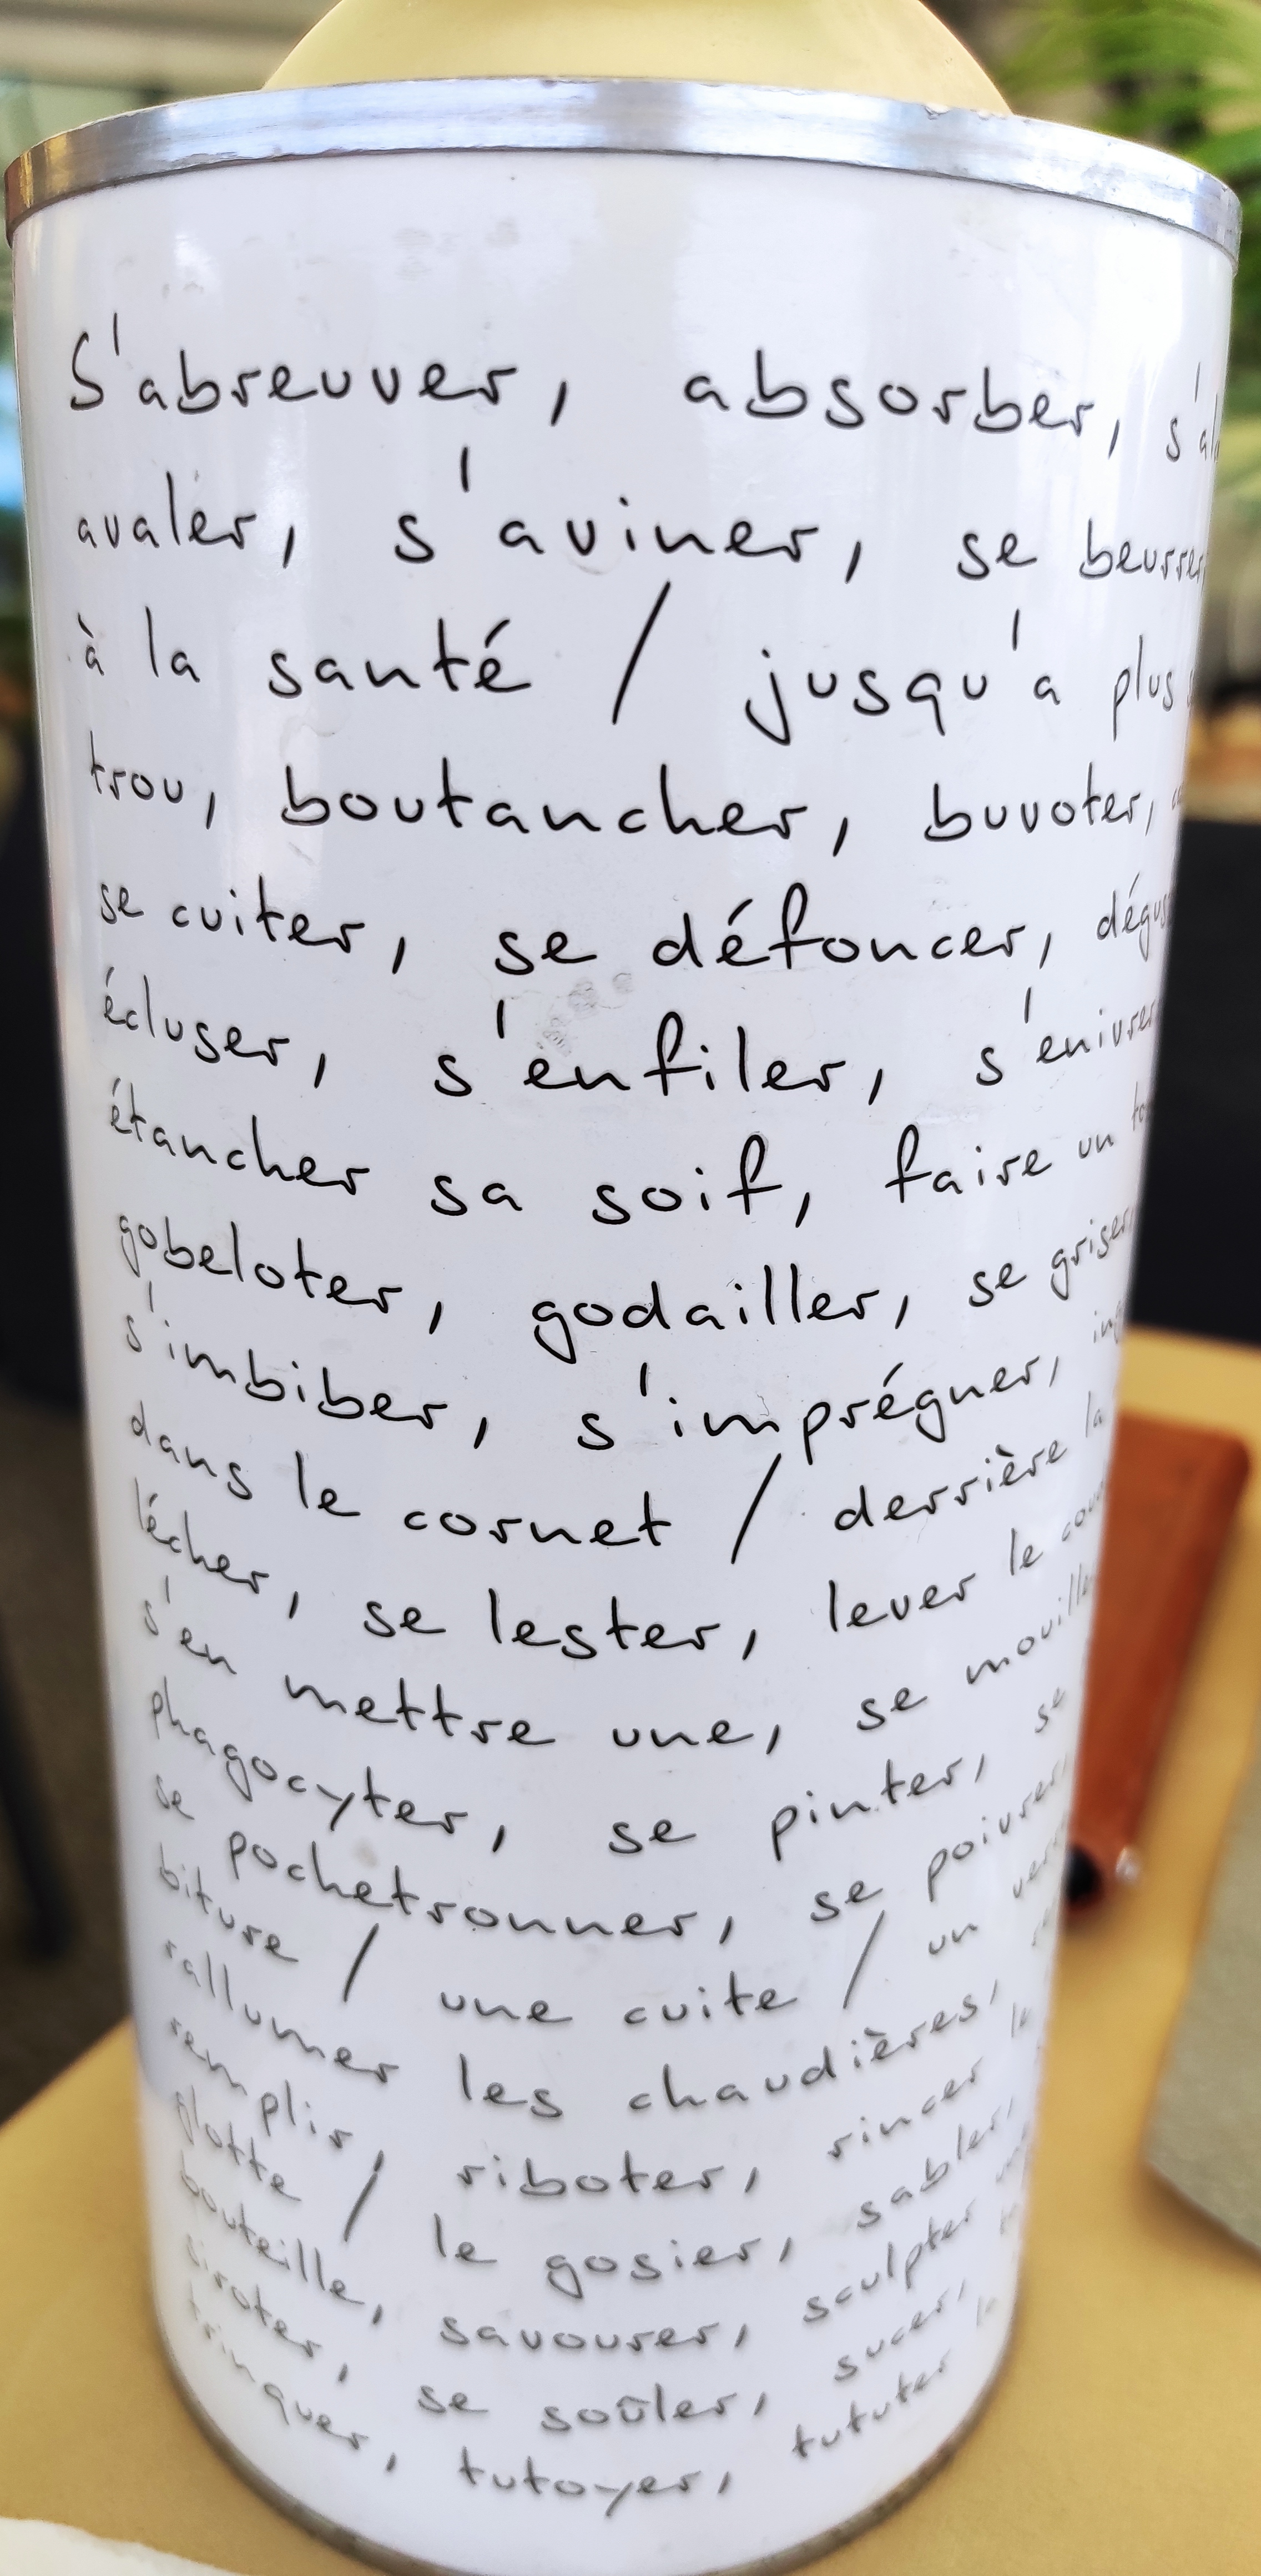 S'abreuver, absorber,
avaler, s'aviner, se beurrer
à la santé / jusqu'a plus
trou, boutancher, buvoter,
se cuiter, se défoncer,
écluser, s'enfiler, s'enivrer
étancher sa soif, faire un
gobeloter, godailler, se griser,
s'imbiber, s'imprégner,
dans le cornet / derrière la
lécher, se lester, lever le
s'en mettre une, se
phagocyter, se pinter, se
se pochetronner, se poivrer,
biture / une cuite / un
rallumer les chaudières,
remplir, riboter, rincer la
glotte / le gosier, sabler,
bouteille, savourer, sculpter
siroter, se soûler, sucer,
trinquer, tutoyer, tututer la